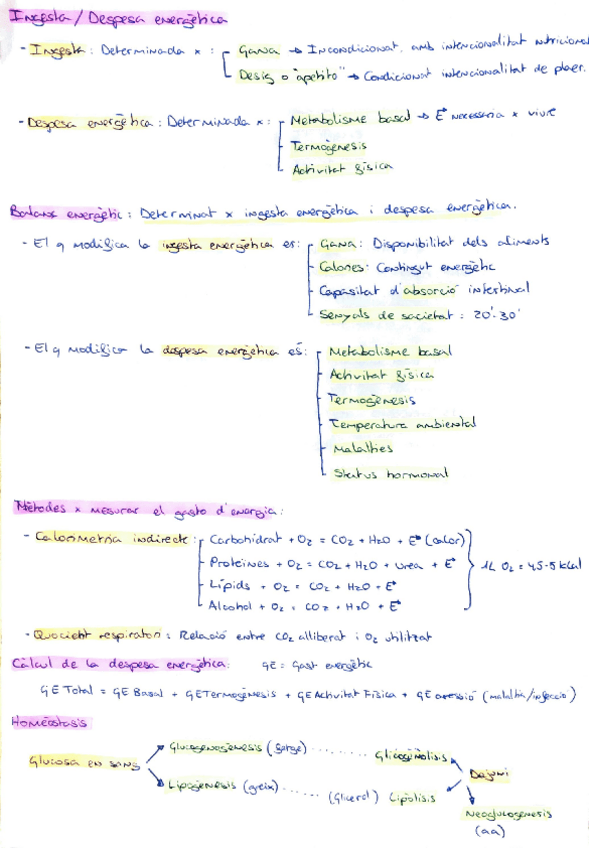 Ingesta / Despesa energètica
- Ingesta: Determinada x: Gana → Incondicionat, amb intencionalitat nutricional
Desig o "apetito" → Condicionat intencionalitat de plaer.
- Despesa energètica: Determinada x: Metabolisme basal → E* necessària x viure
Termogènesis
Activitat física
Balanç energètic: Determinat x ingesta energètica i despesa energètica.
- El q modifica la ingesta energètica es: Gana: Disponibilitat dels aliments
Calories: Contingut energètic
Capacitat d'absorció intestinal
Senyals de sacietat: 20'-30'
- El q modifica la despesa energètica es: Metabolisme basal
Activitat física
Termogènesis
Temperatura ambiental
Malalties
Status hormonal
Mètodes x mesurar el gasto d'energia:
- Calorimetria indirecte: Carbohidrat + O2 = CO2 + H2O + E* (calor)
Proteïnes + O2 = CO2 + H2O + urea + E*
Lípids + O2 = CO2 + H2O + E*
Alcohol + O2 = CO2 + H2O + E*
1L O2 = 4,5-5 kcal
- Quocient respiratori: Relació entre CO2 alliberat i O2 utilitzat
Càlcul de la despesa energètica: GE: Gast energètic
GE Total = GE Basal + GE Termogènesis + GE Activitat Física + GE (malaltia/infecció)
Homeòstasis
Glucosa en sang
Glucogenogènesis (fetge) ........ Glicogènolisis
Lipogènesis (greix) ...... (Glicerol) Lipòlisis
Dejuni
Neoglucogènesis
(aa)